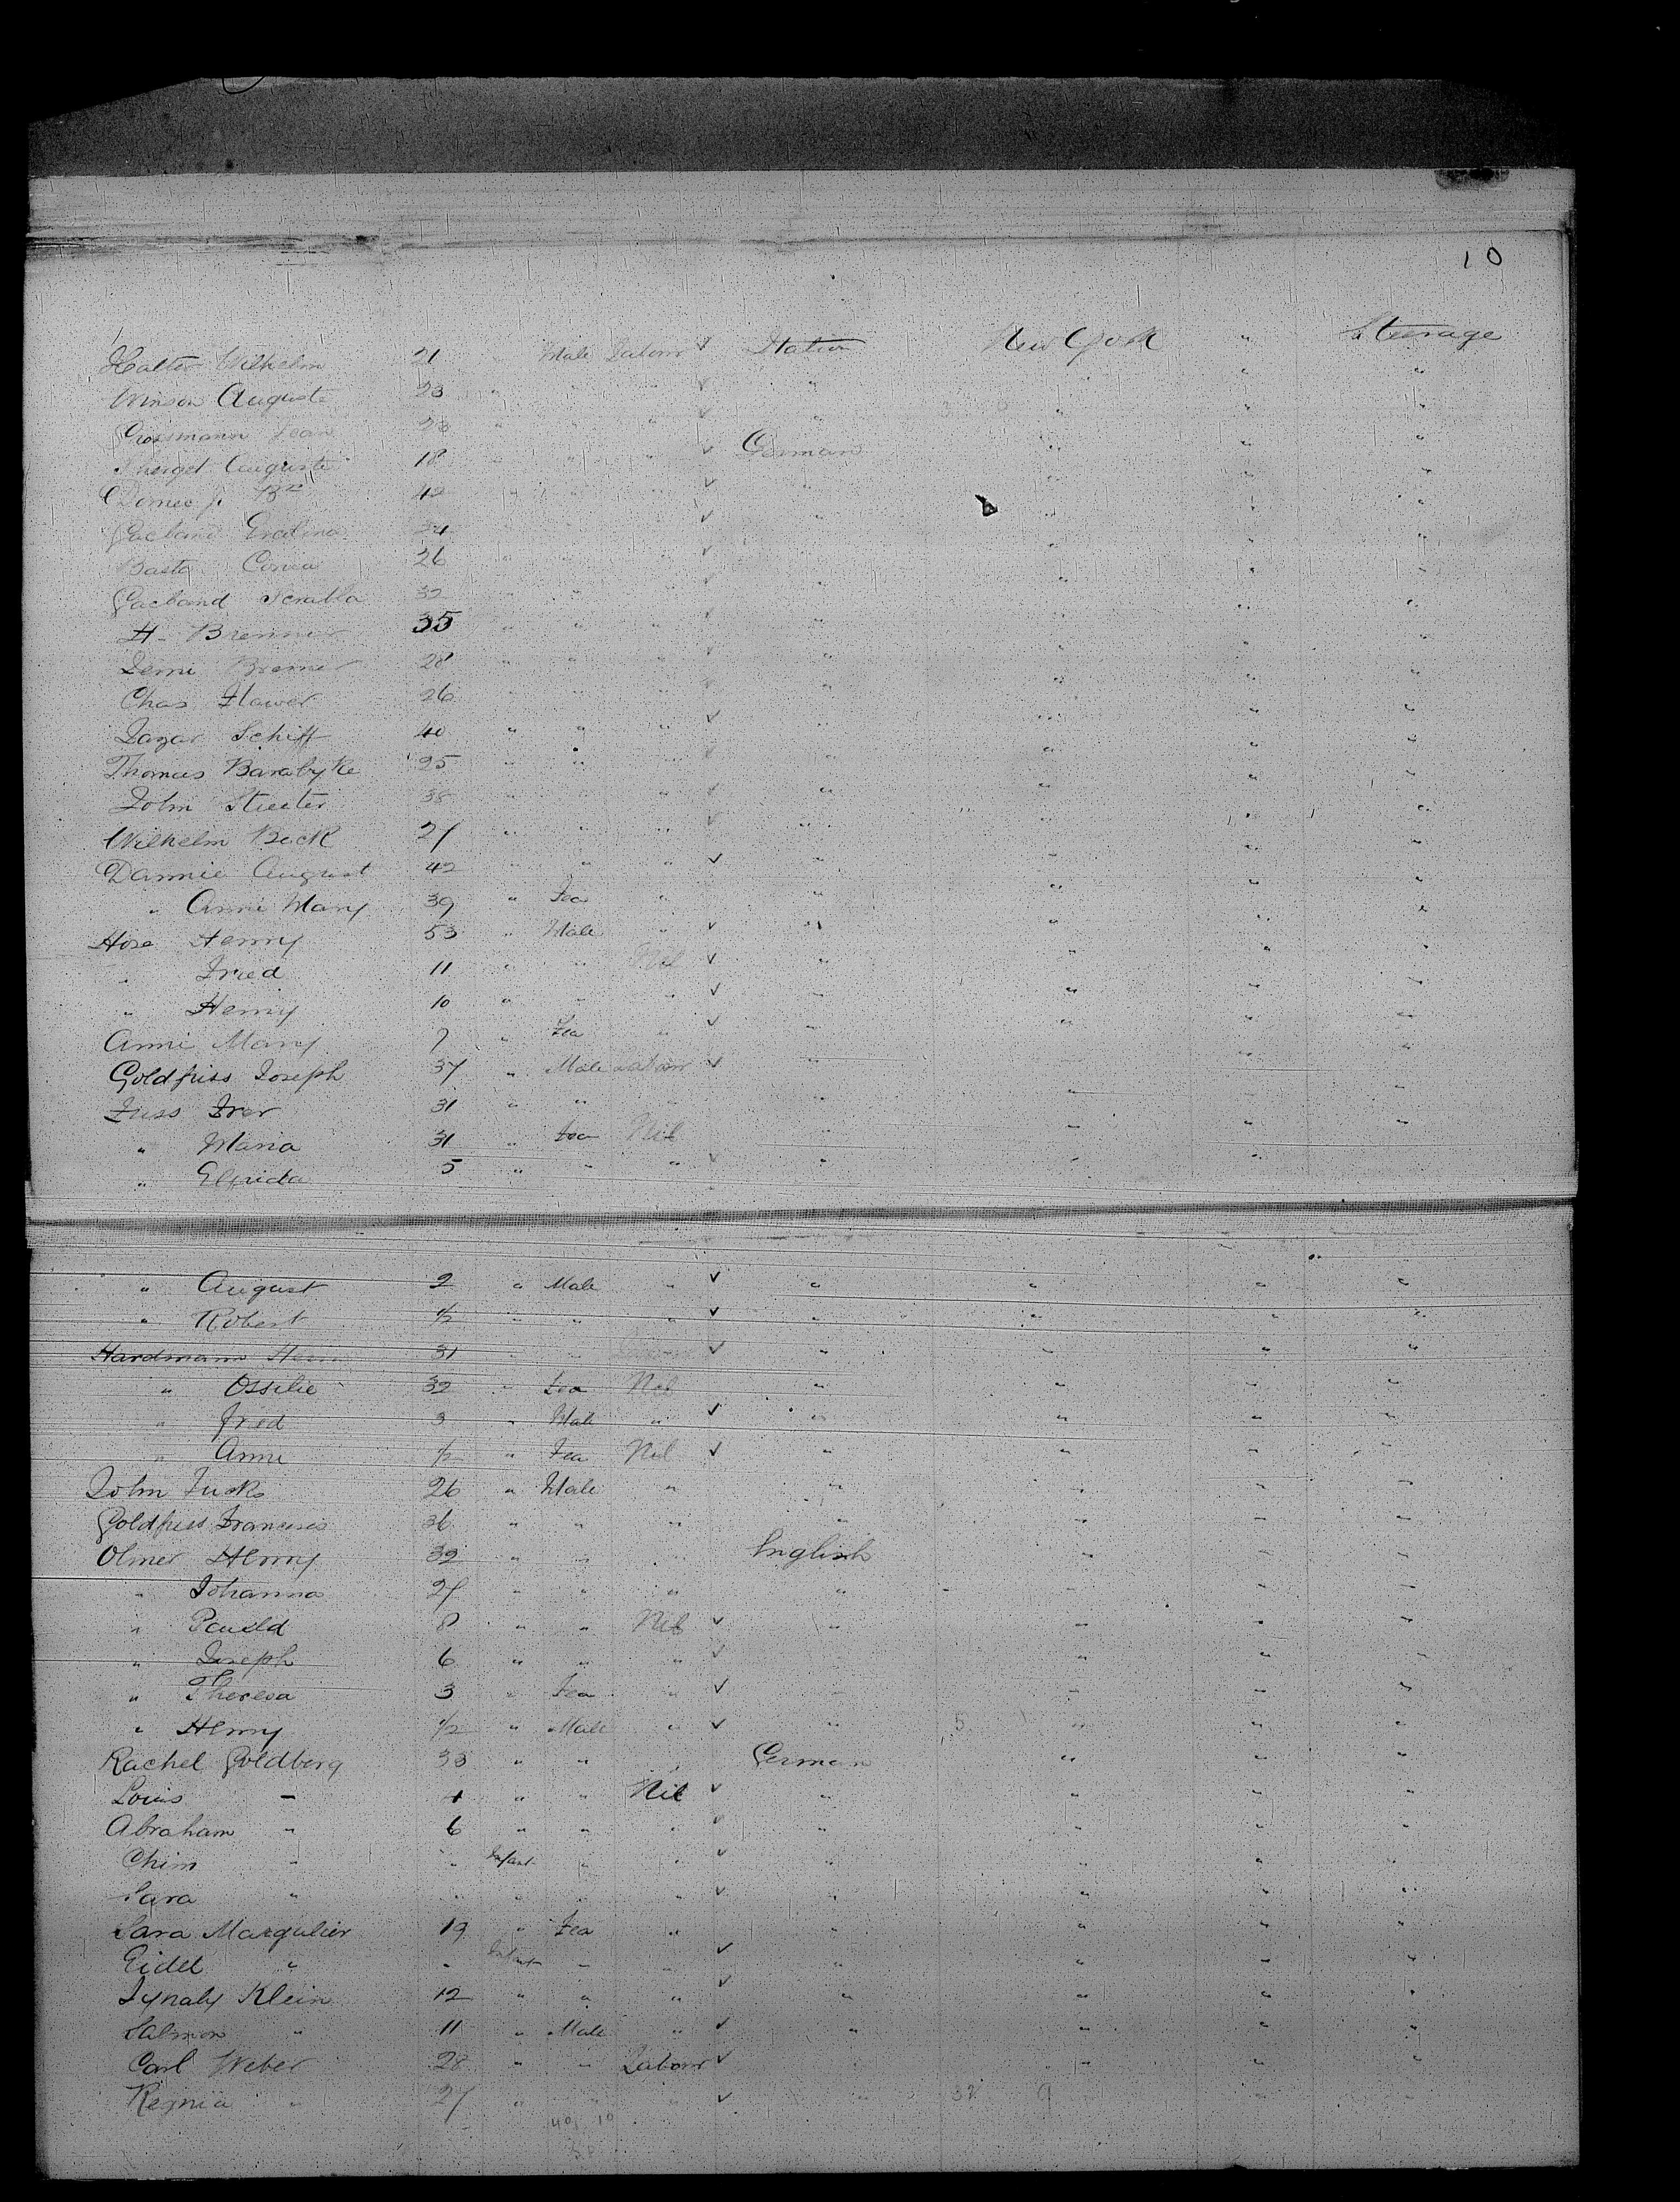 10
Halter Wilhelm 21 " Male Labour ✓ Italian New York " Steerage
Winson Auguste 23 " " " ✓ " " " "
Grossmann Jean 28 " " " ✓ " " " "
Therget Auguste 18 " " " ✓ German " " "
42 " " " ✓ " " " "
24 " " " ✓ " " " "
Basta 26 " " " ✓ " " " "
Gacband 32 " " " ✓ " " " "
H. Brenner 35 " " " ✓ " " " "
Bremer 28 " " " ✓ " " " "
Chas Flower 26 " " " ✓ " " " "
Lazar Schiff 40 " " " ✓ " " " "
Thomas Barabyke 25 " " " ✓ " " " "
John Streeter 38 " " " ✓ " " " "
Wilhelm Beck 27 " " " ✓ " " " "
Dannie August 42 " " " ✓ " " " "
" Anni Mary 39 " Fea " " " " "
Hose Henny 53 " Male " ✓ " " " "
" Fried 11 " " Nil ✓ " " " "
" Henny 10 " " " ✓ " " " "
Anni Mary 7 " Fea " ✓ " " " "
Goldfuss Joseph 37 " Male Labour ✓ " " " "
Fuss 31 " " " " " " "
" Maria 31 " Fea Nil " " " "
" Elfrida 5 " " " ✓ " " "
" August 2 " Male " ✓ " " " "
" Robert 1/2 " " " ✓ " " " "
Hardmann 31 " " Labour ✓ " " " "
" Ossilie 32 " Fea Nil " " " "
" Fried 3 " Male " ✓ " " " "
" Anni 1/2 " Fea Nil ✓ " " " "
John Fucks 26 " Male " " " " "
Goldfuss Francisis 36 " " " " " " "
Olmer Henny 32 " " " English " " "
" Johanna 27 " " " " " " "
" 8 " " Nil ✓ " " " "
" Joseph 6 " " " ✓ " " "
" Theresa 3 " Fea " ✓ " " " "
" Henny 1/2 " Male " ✓ " 5 " " "
Rachel Goldberg 33 " " German " " "
Louis - 4 " " Nil ✓ " " " "
Abraham " 6 " " " ✓ " " " "
Chim " " Infant " " ✓ " " " "
Sara " " " " " ✓ " " " "
Sara Margulier 19 " Fea " " " " "
Eidel " " Infant " " ✓ " " " "
Klein 12 " " " ✓ " " " "
Salmon " 11 " Male " ✓ " " " "
Carl Weber 28 " " Labour ✓ " " "
Regnia " 27 " " " ✓ 9 " "
40 10